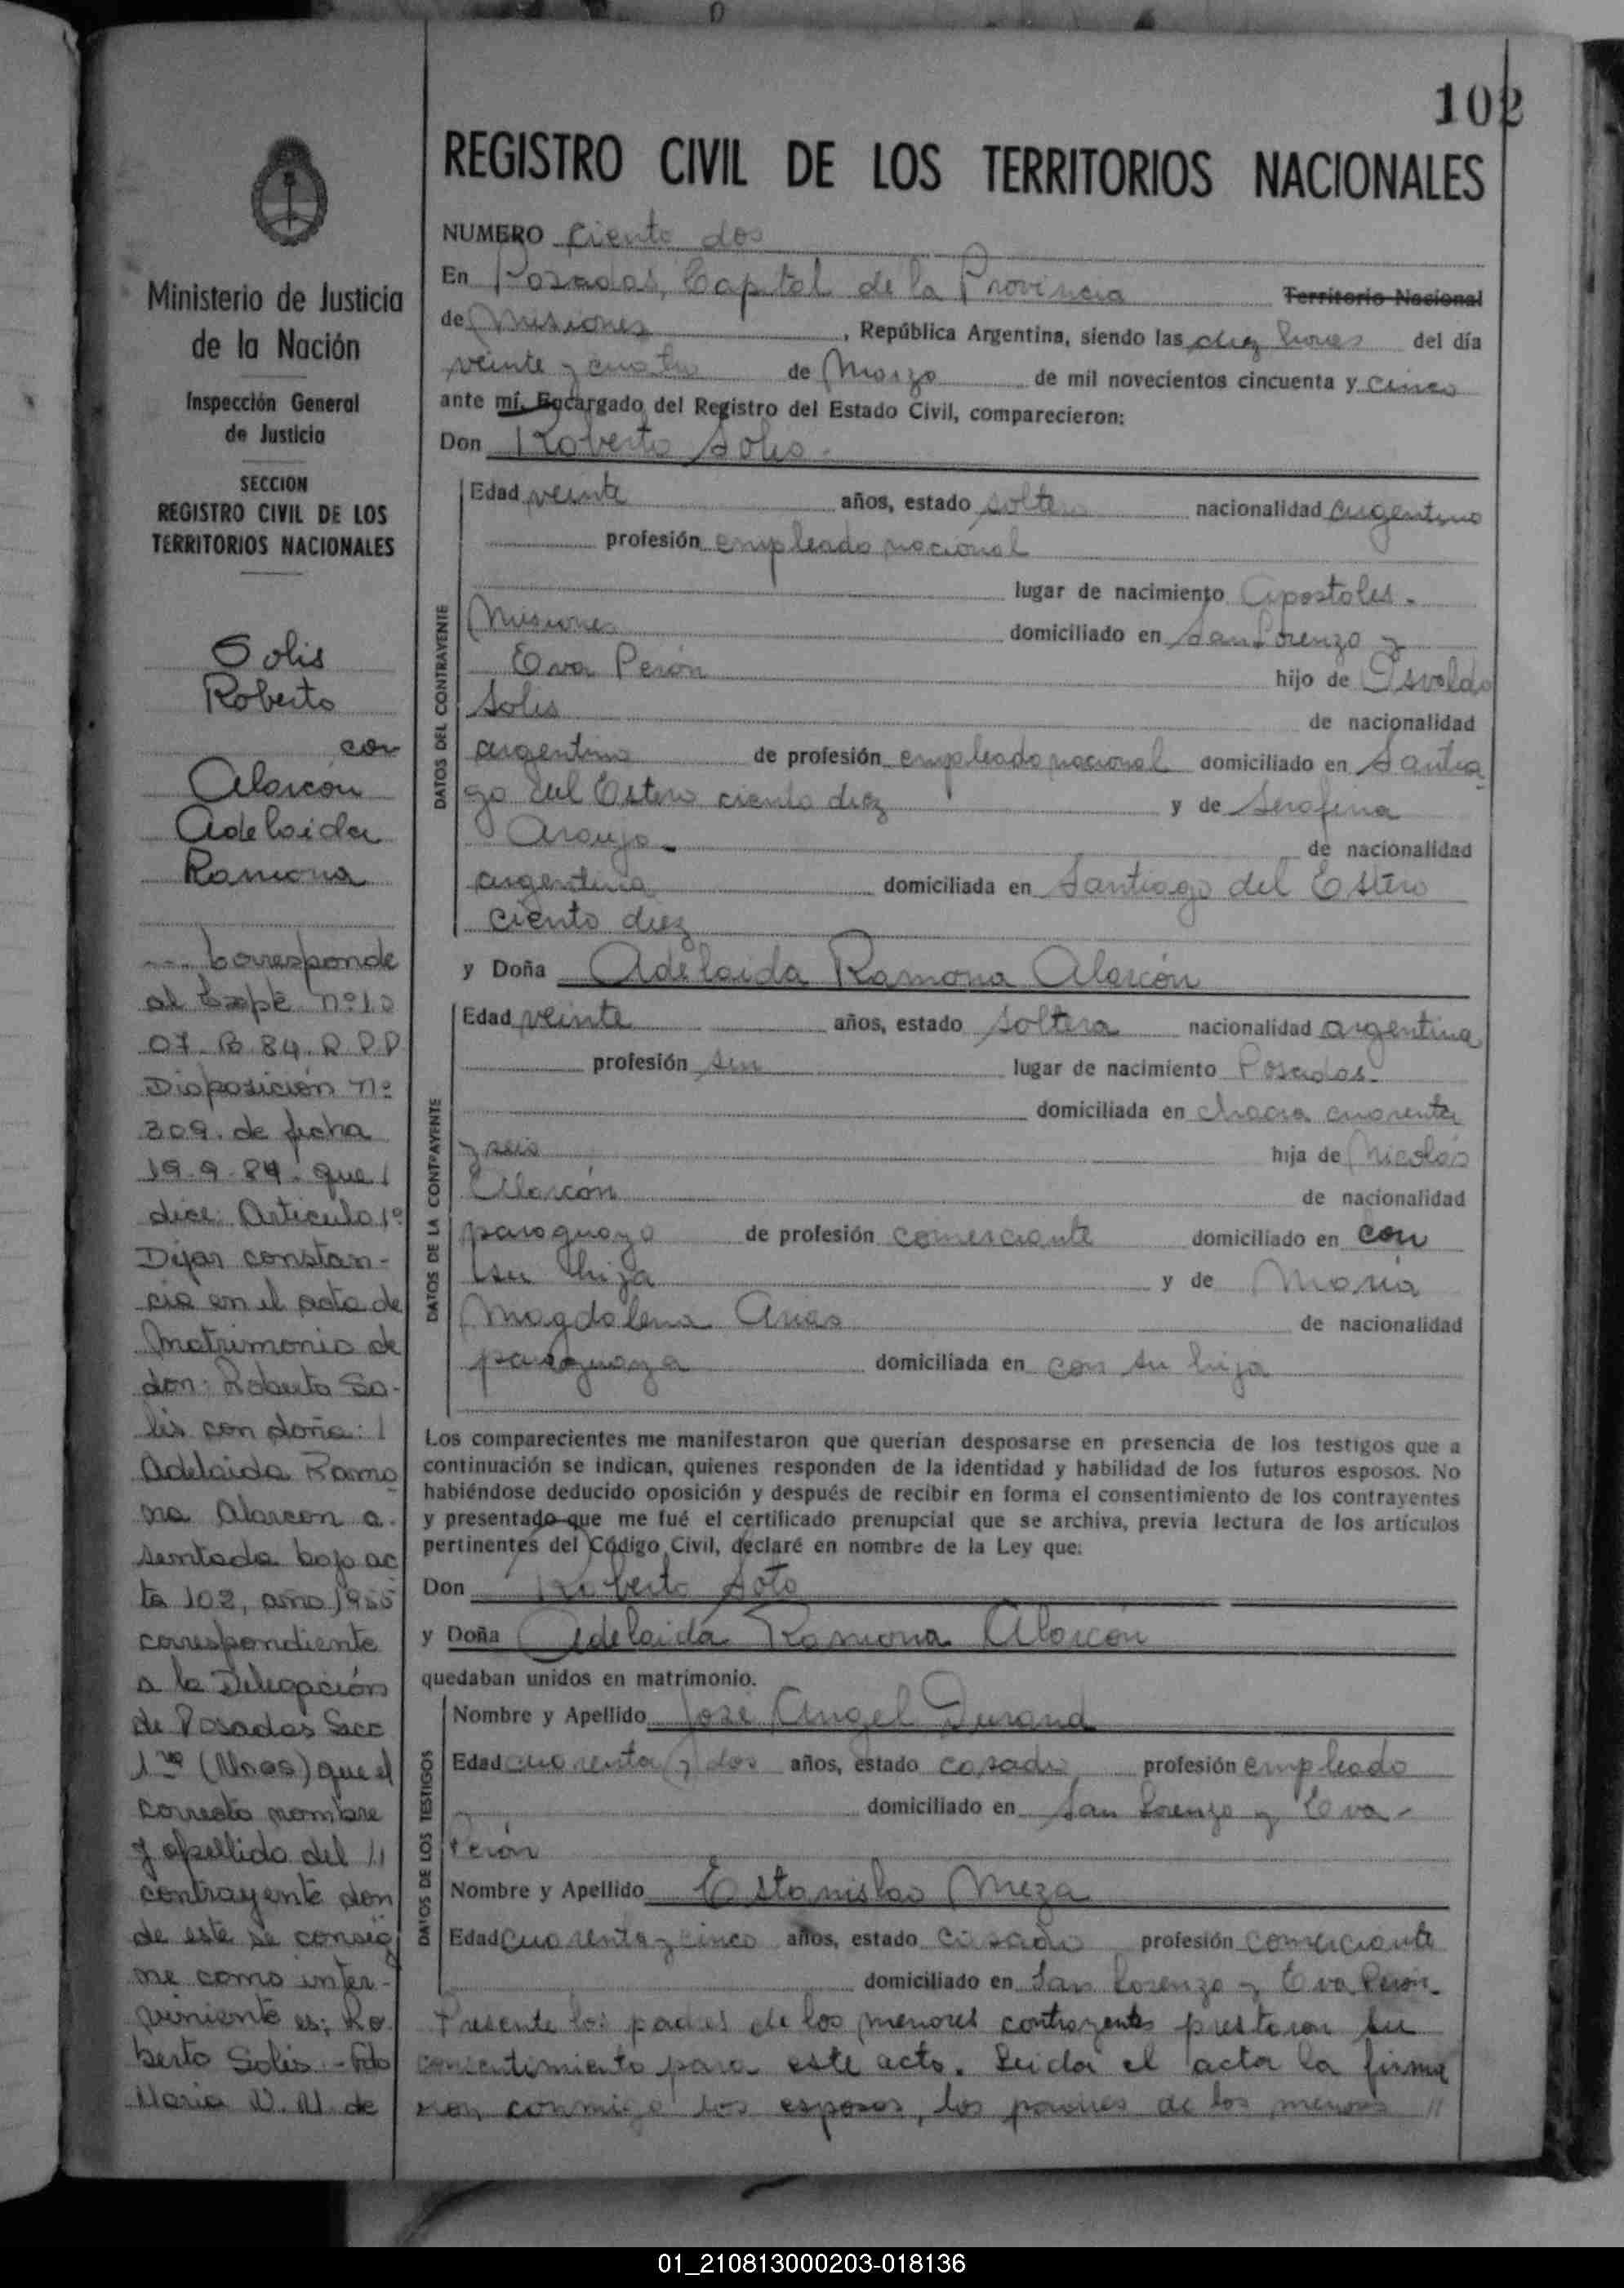 102
REGISTRO CIVIL DE LOS TERRITORIOS NACIONALES
NUMERO Ciento dos
En Posadas, Capital de la Provincia Territorio Nacional
de Misiones, República Argentina, siendo las diez horas del día
veinte y cuatro de Marzo de mil novecientos cincuenta y cinco
ante mí, Encargado del Registro del Estado Civil, comparecieron:
Don Roberto Solis
DATOS DEL CONTRAYENTE
Edad veinte años, estado soltero nacionalidad argentino
profesión empleado nacional
lugar de nacimiento Apostoles.
Misiones domiciliado en San Lorenzo y
Eva Perón hijo de Osvaldo
Solis de nacionalidad
argentino de profesión empleado nacional domiciliado en Santia
go del Estero ciento diez y de Serafina
Araujo de nacionalidad
argentina domiciliada en Santiago del Estero
ciento diez
y Doña Adelaida Ramona Alarcón
DATOS DE LA CONTRAYENTE
Edad veinte años, estado soltera nacionalidad argentina
profesión sin lugar de nacimiento Posadas.
domiciliada en chacra cuarenta
y seis hija de Nicolás
Alarcón de nacionalidad
paraguayo de profesión comerciante domiciliado en con
su hija y de Maria
Magdalena Arias de nacionalidad
paraguaya domiciliada en con su hija
Los comparecientes me manifestaron que querían desposarse en presencia de los testigos que a
continuación se indican, quienes responden de la identidad y habilidad de los futuros esposos. No
habiéndose deducido oposición y después de recibir en forma el consentimiento de los contrayentes
y presentado que me fué el certificado prenupcial que se archiva, previa lectura de los artículos
pertinentes del Código Civil, declaré en nombre de la Ley que:
Don Roberto Soto
y Doña Adelaida Ramona Alarcón
quedaban unidos en matrimonio.
DATOS DE LOS TESTIGOS
Nombre y Apellido José Angel Durand
Edad cuarenta y dos años, estado casado profesión empleado
domiciliado en San Lorenzo y Eva
Perón
Nombre y Apellido Estanislao Meza
Edad cuarenta y cinco años, estado casado profesión comerciante
domiciliado en San Lorenzo y Eva Perón.
Presente los padres de los menores contrayentes prestaron su
consentimiento para este acto. Leida el acta la firma
ron conmigo los esposos, los padres de los menores //
Ministerio de Justicia
de la Nación
Inspección General
de Justicia
SECCION
REGISTRO CIVIL DE LOS
TERRITORIOS NACIONALES
Solis
Roberto
con
Alarcón
Adelaida
Ramona
Corresponde
al Expte nº 10
07. B 84. R P P
Disposición nº
309. de fecha
19.9.84. que /
dice: Articulo 1º
Dejar constan-
cia en el acta de
Matrimonio de
don: Roberto So-
lis con doña: /
Adelaida Ramo
na Alarcon a.
sentada bajo ac
ta 102, año 1955
correspondiente
a la Delegación
de Posadas Secc
1ra (Mnes) que el
correcto nombre
y apellido del //
contrayente don
de este se consig
ne como inter-
viniente es; Ro
berto Solis.- Fdo
Maria de
01_210813000203-018136